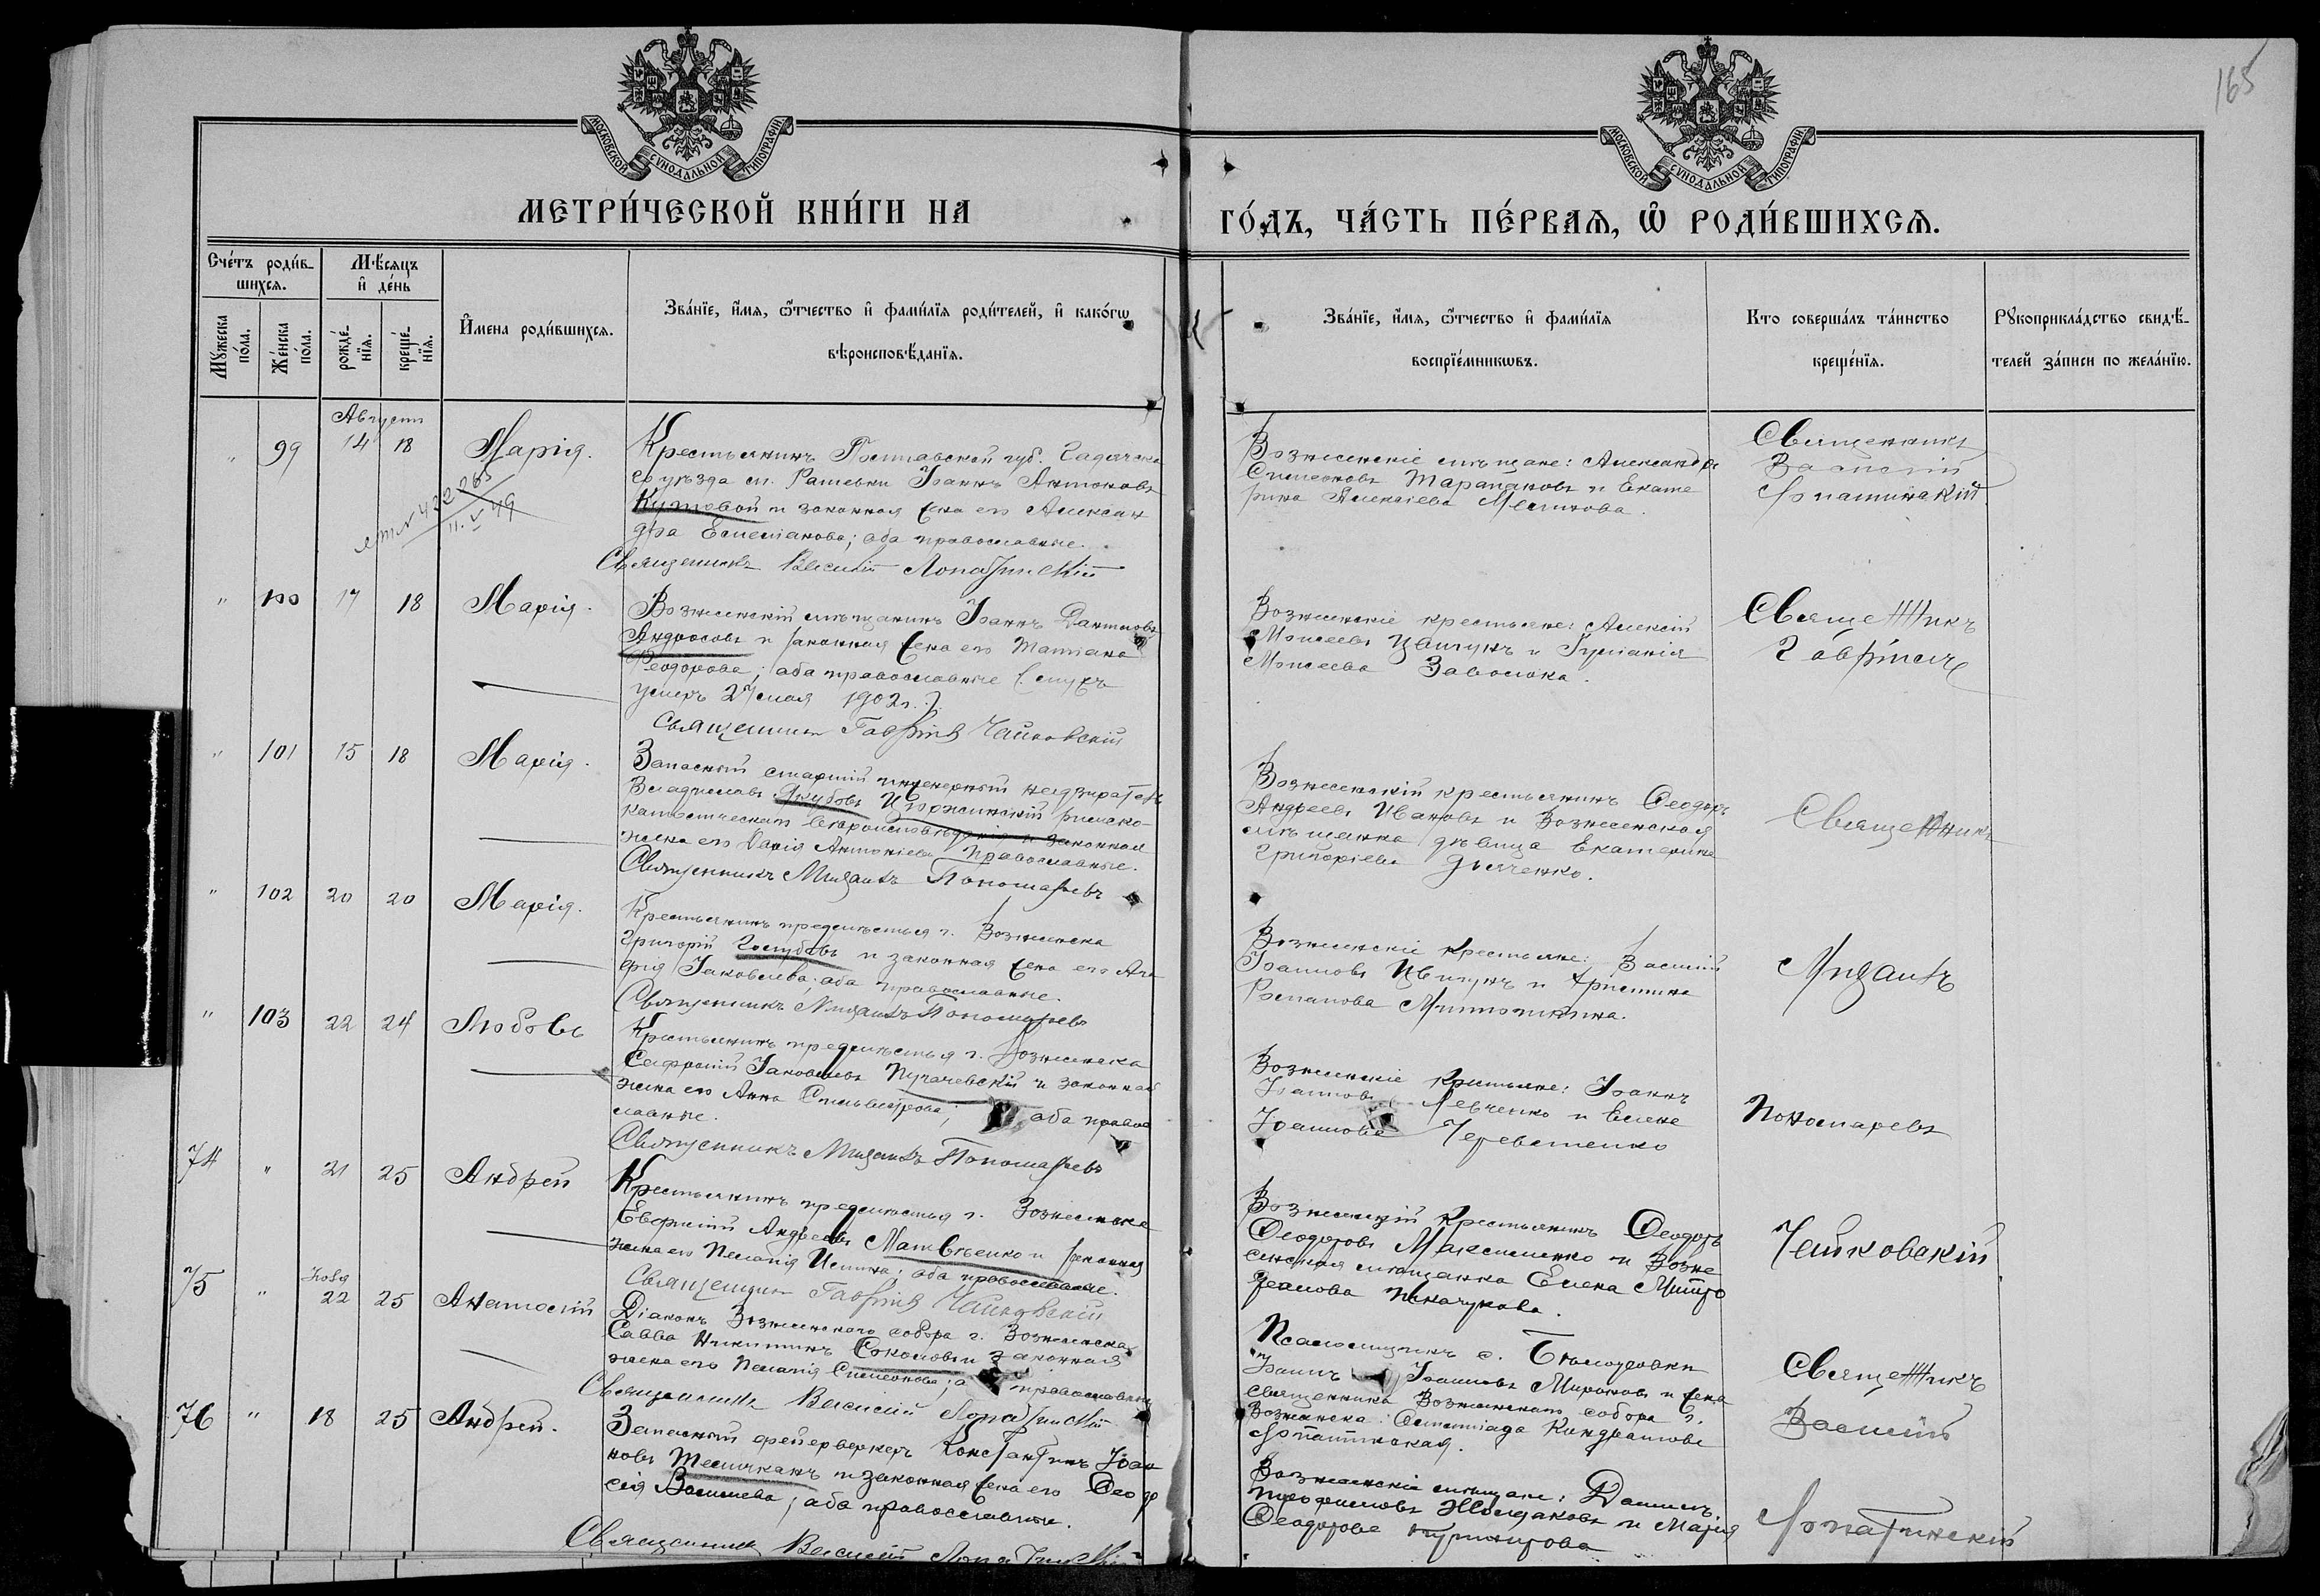 165
МОСКОВСКОЙ СУНОДАЛЬНОЙ ТИПОГРАФІИ
МОСКОВСКОЙ СУНОДАЛЬНОЙ ТИПОГРАФІИ
МЕТРИ́ЧЕСКОЙ КНИ́ГИ НА
ГО́ДЪ, ЧА́СТЬ ПЕ́РВАЯ, Ѡ РОДИ́ВШИХСЯ.
Сче́тъ роди́в-
шихся.
Мꙋ́жеска по́ла.
Же́нска по́ла.
Мѣ́сяцъ и де́нь
рожде́-нїя.
креще́-нїя.
И́мена роди́вшихся.
Зва́нїе, и́мя, ѻ́тчество и фами́лїя роди́телей, и како́гѡ
вѣроисповѣ́данїя.
Зва́нїе, и́мя, ѻ́тчество и фами́лїя
воспрїе́мникѡвъ.
Кто соверша́лъ та́инство
креще́нїя.
Рꙋкоприкла́дство свидѣ́-
телей за́писи по жела́нїю.
Августъ
" 99 14 18 Марія.
Крестьянинъ Полтавской губ. Гадячска
го уѣзда м. Рашевки Іоаннъ Антоновъ
Кутовой и законная жена его Алексан
дра Емеліанова; оба православные.
Священникъ Василій Лопатинскій
Вознесенскіе мѣщане: Александръ
Симеоновъ Тарапановъ и Екате
рина Алексіева
Священникъ
Василій
Лопатинскій
" 100 17 18 Марія.
Вознесенскій мѣщанинъ Іоаннъ Даниловъ
Андросовъ и законная жена его Татіана
Ѳеодорова; оба православные (мужъ
умеръ 27 мая 1902 г.).
Священникъ Гавріилъ Чайковскій
Вознесенскіе крестьяне: Алексій
Моисеевъ Цвигунъ и Іуліанія
Моисеева Заволока.
Священникъ
Гавріилъ
" 101 15 18 Марія.
Запасный старшій инженерный надзиратель
Владиславъ Якубовъ римско-
католическаго вѣроисповѣданія и законная
жена его Дарія Антоніева православные.
Священникъ Михаилъ Пономаревъ
Вознесенскій крестьянинъ Ѳеодоръ
Андреевъ Ивановъ и Вознесенская
мѣщанка дѣвица Екатерина
Григоріева Дьяченко.
Священникъ
" 102 20 20 Марія.
Крестьянинъ предмѣстья г. Вознесенска
Григорій Голубовъ и законная жена его Ага
фія Іаковлева; оба православные.
Священникъ Михаилъ Пономаревъ
Вознесенскіе крестьяне: Василій
Іоанновъ Цвигунъ и Христина
Романова
Михаилъ
" 103 22 24 Любовь
Крестьянинъ предмѣстья г. Вознесенска
Софроній Іаковлевъ Пугачевскій и законная
жена его Анна Сильвестрова; оба право
славные.
Священникъ Михаилъ Пономаревъ
Вознесенскіе крестьяне: Іоаннъ
Іоанновъ Левченко и Елена
Іоаннова Череватенко
Пономаревъ
74 " 21 25 Андрей
Крестьянинъ предмѣстья г. Вознесенска
Евфимій Андреевъ Матвѣенко и законная
жена его Пелагія; оба православные.
Священникъ Гавріилъ Чайковскій
Вознесенскій крестьянинъ Ѳеодоръ
Ѳеодоровъ Максименко и Возне
сенская мѣщанка Елена Митро
Чайковскій
75 " 22 25 Анатолій
Діаконъ Вознесенскаго собора г. Вознесенска
Савва Никитинъ Соколовъ и законная
жена его Пелагія Симеонова; православные
Священникъ Василій Лопатинскій
Псаломщикъ с. Бѣлоусовки
Іоаннъ Іоанновъ Мироновъ и жена
священника Вознесенскаго собора г.
Вознесенска: Олимпіада Кондратова
Лопатинская.
Священникъ
Василій
76 " 18 25 Андрей.
Запасный фейерверкеръ Константинъ Іоан
новъ и законная жена его Ѳеодо
сія Васильева; оба православные.
Священникъ Василій Лопатинскій
Вознесенскіе мѣщане: Даніилъ
Трофимовъ и Марія
Ѳеодорова
Лопатинскій